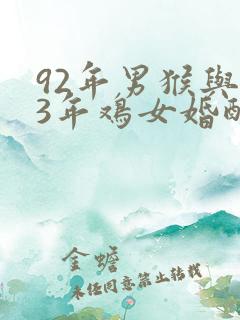 92年男猴與
3年鸡女婚配
金蟾
未经同意禁止转载